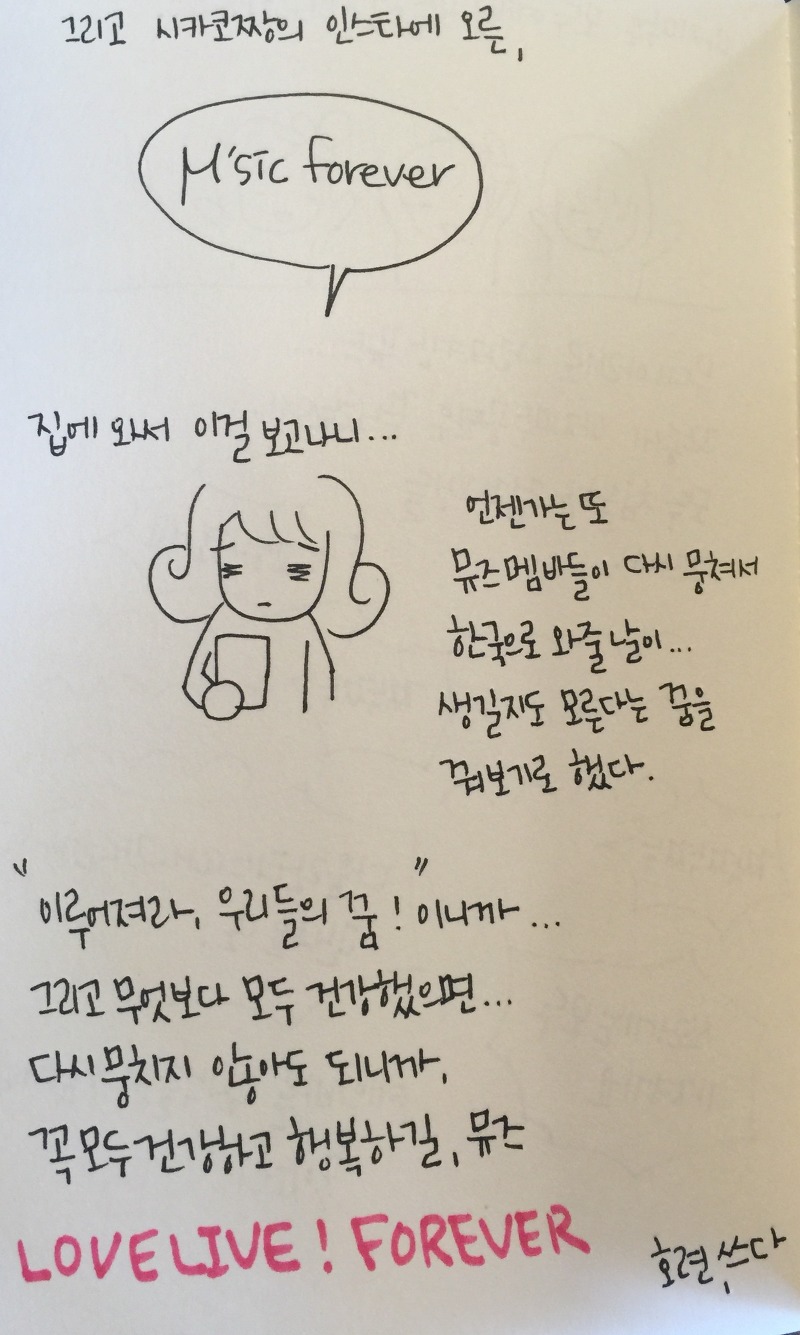 그리고 시카코짱의 인스타에 오른,
μ'sic forever
집에 와서 이걸 보고나니...
언젠가는 또
뮤즈 멤바들이 다시 뭉쳐서
한국으로 와줄 날이...
생길지도 모른다는 꿈을
꿔보기로 했다.
"이루어져라, 우리들의 꿈!" 이니까...
그리고 무엇보다 모두 건강했으면...
다시 뭉치지 않아도 되니까,
꼭 모두 건강하고 행복하길, 뮤즈
LOVELIVE! FOREVER
호련, 쓰다